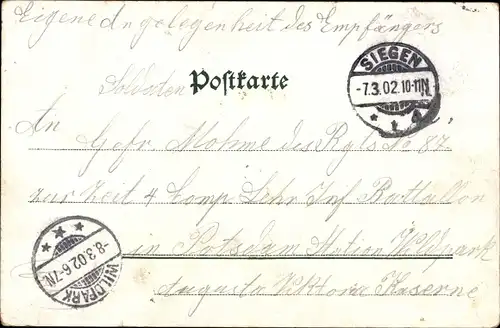 Eigene Angelegenheit des Empfängers
Soldaten Postkarte
SIEGEN
-7.3.02.10-11N.
* 1
An
Gefr. Mohme des Rgts No 87
zur Zeit 4 Comp. Lehr Inf. Battallon
in Potsdam Station Wildpark
Augusta Viktora Kaserne
8.3.02.6-7N.
WILDPARK